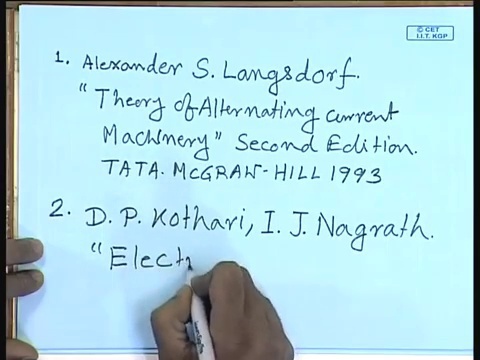 © CET
I.I.T. KGP
1. Alexander S. Langsdorf.
"Theory of Alternating current
Machinery" Second Edition.
TATA. McGRAW-HILL 1993
2. D. P. Kothari, I. J. Nagrath.
"Elect